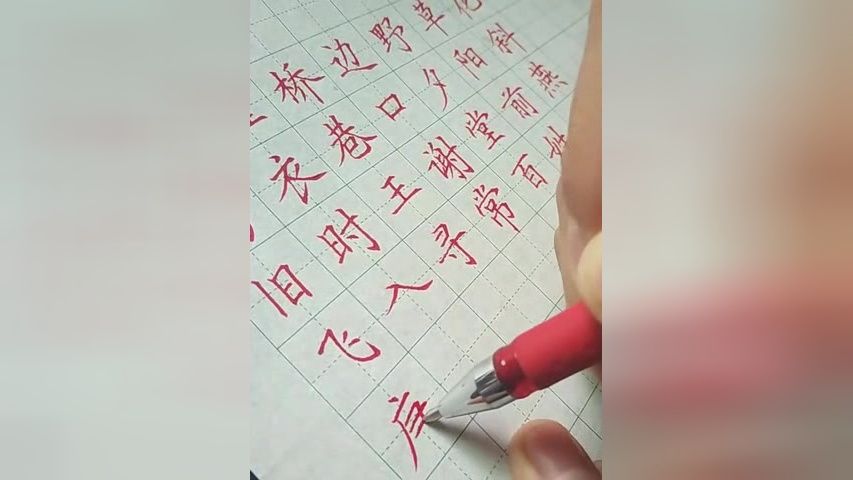 桥边野草花
衣巷口夕阳斜
旧时王谢堂前燕
飞入寻常百姓